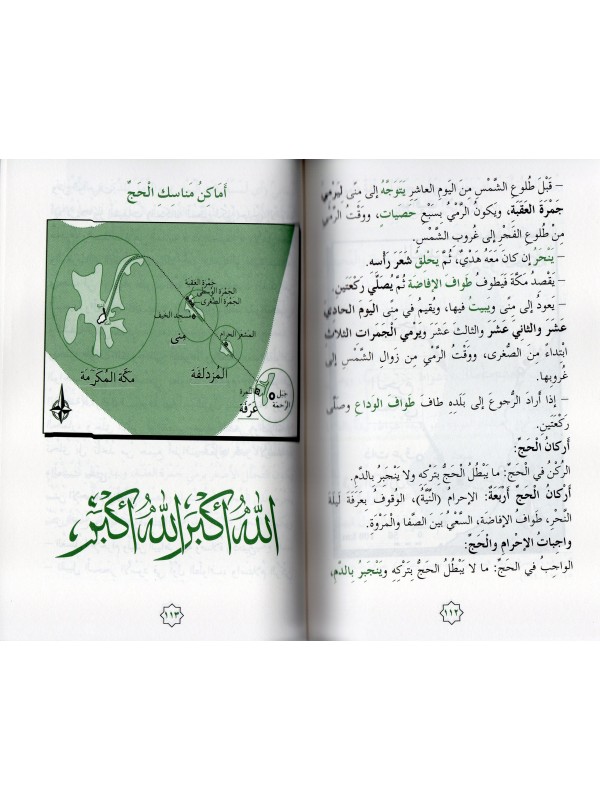 – قَبْلَ طُلوعِ الشَّمْسِ مِنَ اليَومِ العاشِرِ يَتَوَجَّهُ إلى مِنًى لَيَرْمِيَ
جَمْرَةَ العَقَبَةِ، ويَكونُ الرَّمْيُ بِسَبْعِ حَصَياتٍ، ووَقْتُ الرَّمْيِ
مِنْ طُلوعِ الفَجْرِ إلى غُروبِ الشَّمْسِ.
– يَنْحَرُ إن كانَ مَعَهُ هَدْيٌ، ثُمَّ يَحلقُ شَعَرَ رَأسِه.
– يَقْصِدُ مَكَّةَ فَيَطوفُ طَوافَ الإفاضَةِ ثُمَّ يُصَلّي رَكْعَتَينِ.
– يَعودُ إلى مِنًى ويَبيتُ فيها، ويُقيمُ في مِنًى اليَومَ الحادِي
عَشَرَ والثّاني عَشَرَ والثالث عَشَرَ ويَرمي الْجَمَرات الثَّلاثَ
ابْتِداءً مِنَ الصُّغرى، ووَقْتُ الرَّميِ مِن زَوالِ الشَّمْسِ إلى
غُروبِها.
– إذا أرادَ الرُّجوعَ إلى بَلَدِهِ طافَ طَوافَ الوَداعِ وصَلّى
رَكْعَتَينِ.
أركانُ الْحَجِّ:
الرُّكْنُ في الْحَجِّ: ما يَبْطُلُ الْحَجُّ بتركِه ولا يَنْجَبِرُ بالدَّمِ.
أَرْكانُ الْحَجِّ أَرْبَعَةٌ: الإحرامُ (النِّيَّةُ)، الوقوفُ بعَرَفَةَ لَيلَةَ
النَّحْرِ، طَوافُ الإفاضَةِ، السَّعْيُ بَينَ الصَّفا والْمَروَةِ.
واجباتُ الإحرامِ والْحَجِّ:
الواجِبُ في الْحَجِّ: ما لا يَبْطُلُ الحَجُّ بِتَرْكِهِ ويَنْجَبِرُ بِالدَّمِ،
١١٢
أماكنُ مَناسِكِ الْحَجِّ
جَمْرَة العقبة
الجَمْرَة الوُسْطى
الجَمْرَة الصُّغْرى
مسجد الخيف
مِنى
المشعر الحرام
المُزدلفة
مكَّة المُكرّمة
نَمِرة
جَبَل
الرَّحْمَة
عَرَفَة
اللهُ أَكْبَرُ اللهُ أَكْبَرُ
١١٣